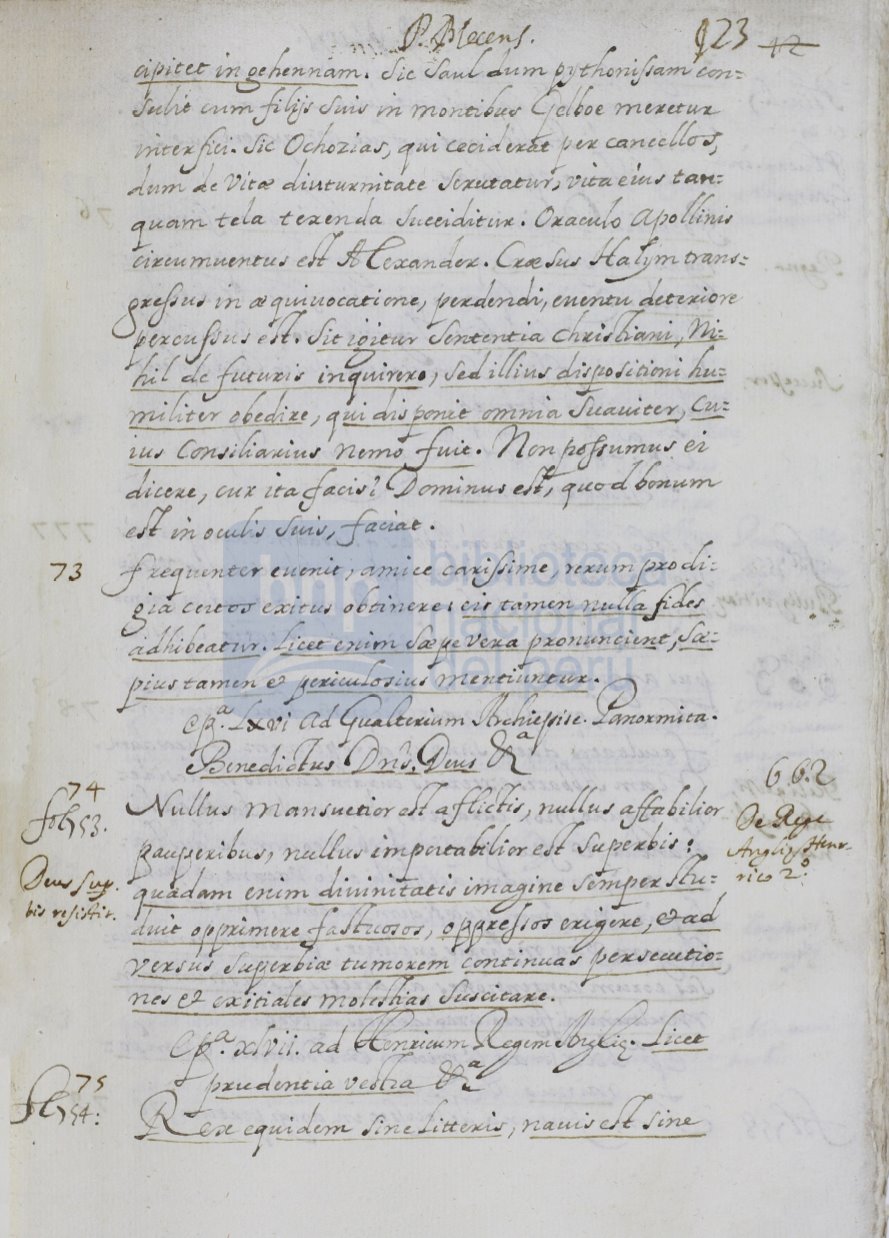 P. Blecens.
123 42
cipitet in gehennam. Sic Saul dum pythonissam con-
sulit cum filijs suis in montibus Gelboe meretur
interfici. Sic Ochozias, qui ceciderat per cancellos,
dum de vitæ diuturnitate scrutatur, vita eius tan-
quam tela texenda succiditur. Oraculo Apollinis
circumuentus est Alexander. Cræsus Halym trans-
gressus in æquiuocatione, perdendi, euentu deteriore
percussus est. Sit igitur sententia christiani, Ni-
hil de futuris inquirere, sed illius dispositioni hu-
militer obedire, qui disponit omnia suauiter, cu-
ius consiliarius nemo fuit. Non possumus ei
dicere, cur ita facis? Dominus est, quod bonum
est in oculis suis, faciat.
73 frequenter euenit, amice carissime, rerum prodi-
gia certos exitus obtinere: eis tamen nulla fides
adhibeatur. Licet enim sæpe vera pronuncient, sæ-
pius tamen & periculosius mentiuntur.
epª. Lxvi ad Gualterium Archiepisc. Panormita.
Benedictus Dns. Deus &ª
74
fol. 53.
Nullus mansuetior est afflictis, nullus affabilior
pauperibus, nullus importabilior est superbis:
quadam enim diuinitatis imagine semper stu-
duit opprimere fastuosos, oppressos erigere, & ad
versus superbiæ tumorem continuas persecutio-
nes & exitiales molestias suscitare.
Deus sup.
bis resistit.
662
De Rege
Angliæ Hen-
rico 2º.
epª. xlvii. ad Henricum Regem Anglię. Licet
prudentia vestra &ª
75
fol. 54.
Rex equidem sine litteris, nauis est sine
biblioteca
nacional
del perú